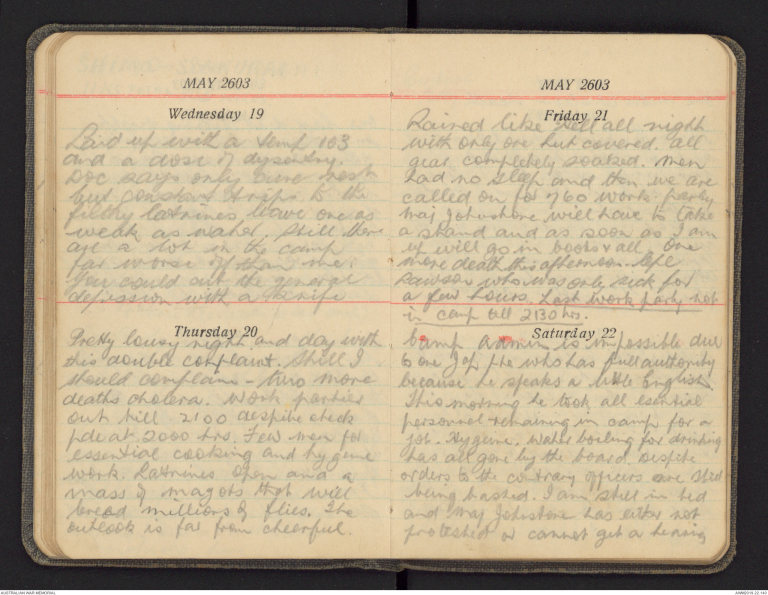 MAY 2603
Wednesday 19
Laid up with a temp 103
and a dose of dysentry.
Doc says only cure rest
but constant trips to the
filthy latrines leave one as
weak as water. Still there
are a lot in the camp
far worse off than me.
You could cut the general
depression with a knife
Thursday 20
Pretty lousy night and day with
this double complaint. Still I
should complain - two more
deaths cholera. Work parties
out till 2100 despite check
pde at 2000 hrs. Few men for
essential cooking and hygene
work. Latrines open and a
mass of magots that will
bread millions of flies. The
outlook is far from cheerful.
MAY 2603
Friday 21
Rained like hell all night
with only one hut covered. All
gear completely soaked. Men
had no sleep and then we are
called on for 760 work party
Maj Johnstone will have to take
a stand and as soon as I am
up will go in boots & all. One
more death this afternoon. Lge
Rawson who was only sick for
a few hours. Last work party not
in camp till 2130 hrs.
Saturday 22
Camp admin is impossible due
to one Jap pte who has full authority
because he speaks a little English.
This morning he took all essential
personnel remaining in camp for a
job. Hygene, water boiling for drinking
has all gone by the board. Despite
orders to the contrary officers are still
being bashed. I am still in bed
and Maj Johnstone has either not
protested or cannot get a hearing
AUSTRALIAN WAR MEMORIAL